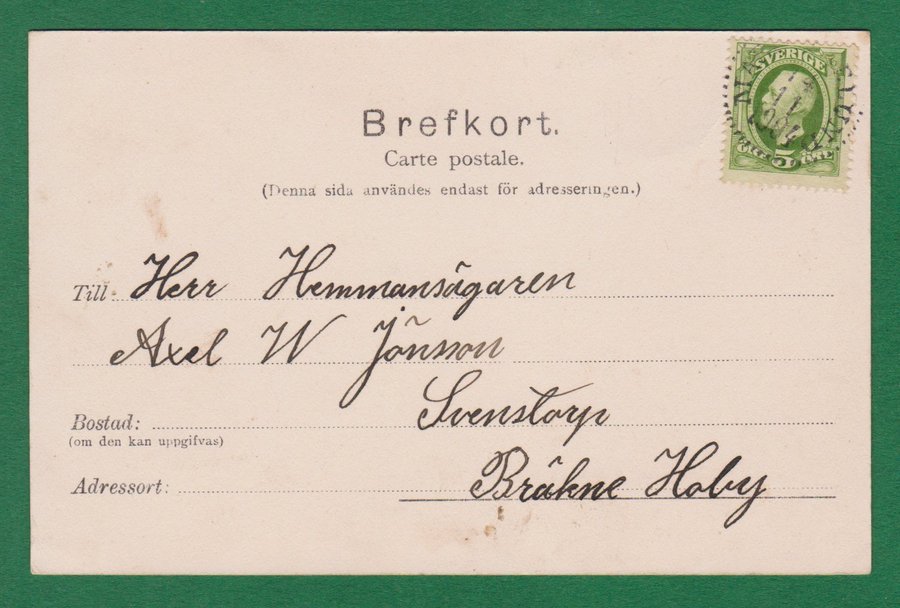 SVERIGE
ÖRE 5 ÖRE
Brefkort.
Carte postale.
(Denna sida användes endast för adresseringen.)
Till Herr Hemmansägaren
Axel W Jönsson
Bostad: Svenstorp
(om den kan uppgifvas)
Adressort: Bräkne Hoby